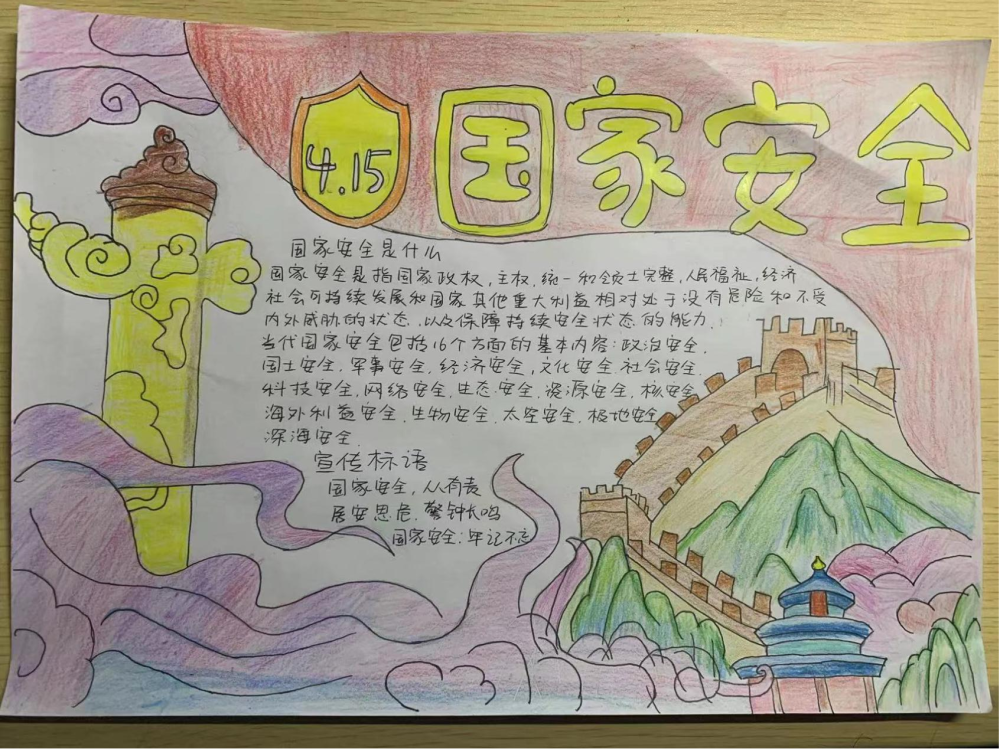 4.15 国家安全
国家安全是什么
国家安全是指国家政权,主权,统一和领土完整,人民福祉,经济
社会可持续发展和国家其他重大利益相对处于没有危险和不受
内外威胁的状态,以及保障持续安全状态的能力.
当代国家安全包括16个方面的基本内容:政治安全.
国土安全.军事安全.经济安全,文化安全.社会安全.
科技安全.网络安全.生态安全.资源安全.核安全
海外利益安全.生物安全.太空安全.极地安全
深海安全.
宣传标语
国家安全,人人有责
居安思危.警钟长鸣
国家安全:牢记不忘